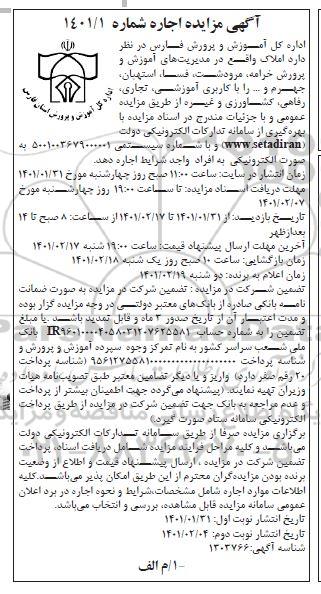 آگهی مزایده اجاره شماره ۱۴۰۱/۱
اداره کل آموزش و پرورش فارس در نظر
دارد املاک واقع در مدیریت‌های آموزش و
پرورش خرامه، مرودشت، فسا، استهبان،
جهرم و ... را با کاربری آموزشی، تجاری،
رفاهی، کشاورزی و غیره از طریق مزایده
عمومی و با جزئیات مندرج در اسناد مزایده با
بهره‌گیری از سامانه تدارکات الکترونیکی دولت
(www.setadiran) و با شماره سیستمی ۵۰۰۱۰۰۳۶۷۹۰۰۰۰۰۱ به
صورت الکترونیکی به افراد واجد شرایط اجاره دهد.
زمان انتشار در سایت: ساعت ۱۱:۰۰ صبح روز چهارشنبه مورخ ۱۴۰۱/۰۱/۳۱
مهلت دریافت اسناد مزایده: تا ساعت ۱۹:۰۰ روز چهارشنبه مورخ
۱۴۰۱/۰۲/۰۷
تاریخ بازدید: از ۱۴۰۱/۰۱/۳۱ تا ۱۴۰۱/۰۲/۱۷ از ساعت: ۸ صبح تا ۱۴
بعدازظهر
آخرین مهلت ارسال پیشنهاد قیمت: ساعت ۱۹:۰۰ شنبه ۱۴۰۱/۰۲/۱۷
زمان بازگشایی: ساعت ۱۰ صبح روز یک شنبه ۱۴۰۱/۰۲/۱۸
زمان اعلام به برنده: دو شنبه ۱۴۰۱/۰۲/۱۹
تضمین شرکت در مزایده : تضمین شرکت در مزایده به صورت ضمانت
نامه بانکی صادره از بانک‌های معتبر دولتی در وجه مزایده گزار بوده
و مدت اعتبار آن از تاریخ صدور ۳ ماه و قابل تمدید باشد .یا مبلغ
تضمین را به شماره حساب بانک
ملی شعب سراسر کشور به نام تمرکز وجوه سپرده آموزش و پرورش و
شناسه پرداخت (شناسه پرداخت
۲۰ رقم صفر دارد) واریز و یا دیگر تضامین معتبر طبق تصویب‌نامه هیات
وزیران تهیه نمایند. (پیشنهاد می‌گردد جهت اطمینان بیشتر از پرداخت
و عدم مراجعه به بانک جهت تضمین شرکت در مزایده از طریق پرداخت
الکترونیکی سامانه ستاد صورت گیرد.)
برگزاری مزایده صرفا از طریق سامانه تدارکات الکترونیکی دولت
می‌باشد و کلیه مراحل فرآیند مزایده شامل دریافت اسناد، پرداخت
تضمین شرکت در مزایده ، ارسال پیشنهاد قیمت و اطلاع از وضعیت
برنده بودن مزایده‌گران محترم از این طریق امکان پذیر می‌باشد.کلیه
اطلاعات موارد اجاره شامل مشخصات،شرایط و نحوه اجاره در برد اعلان
عمومی سامانه مزایده قابل مشاهده، بررسی و انتخاب می‌باشد.
تاریخ انتشار نوبت اول: ۱۴۰۱/۰۱/۳۱
تاریخ انتشار نوبت دوم: ۱۴۰۱/۰۲/۰۴
شناسه آگهی: ۱۳۰۳۷۶۶
۱۰/م الف
اداره کل آموزش و پرورش استان فارس